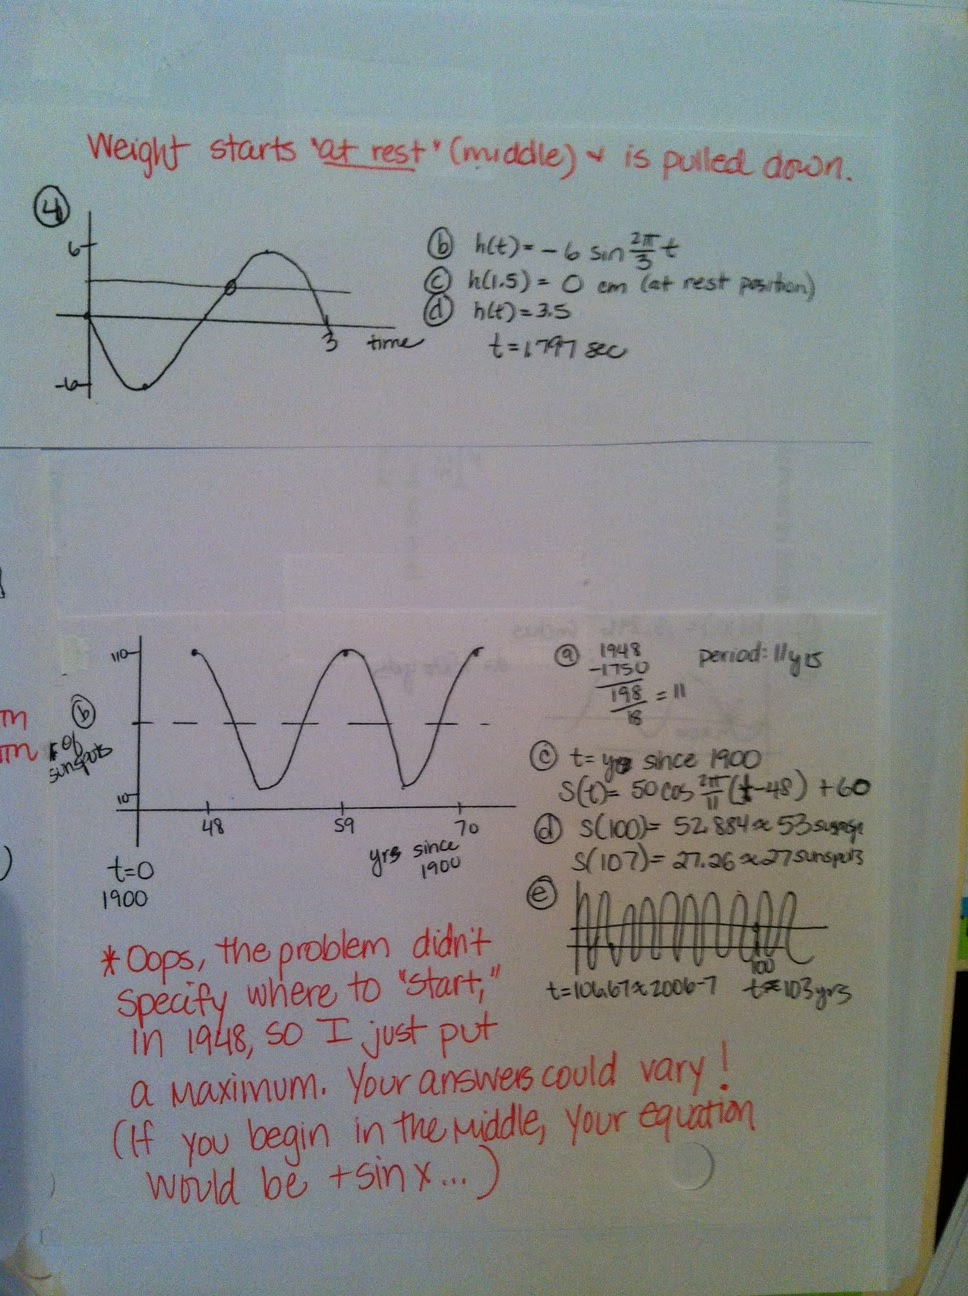 Weight starts "at rest" (middle) & is pulled down.
4
6
-6
3 time
b h(t) = -6 sin 2π/3 t
c h(1.5) = 0 cm (at rest position)
d h(t) = 3.5
t = 1.797 sec
m
m
b
# of
sunspots
110
10
48 59 70
yrs since
1900
t=0
1900
a 1948
-1750
198 = 11
18
period: 11 yrs
c t = yrs since 1900
S(t) = 50 cos 2π/11 (t-48) + 60
d S(100) = 52.884 ≈ 53
S(107) = 27.26 ≈ 27 sunspots
e
100
t = 106.67 ≈ 2006-7 t ≈ 103 yrs
* Oops, the problem didn't
specify where to "start,"
in 1948, so I just put
a maximum. Your answers could vary!
(If you begin in the middle, your equation
would be + sin x ... )